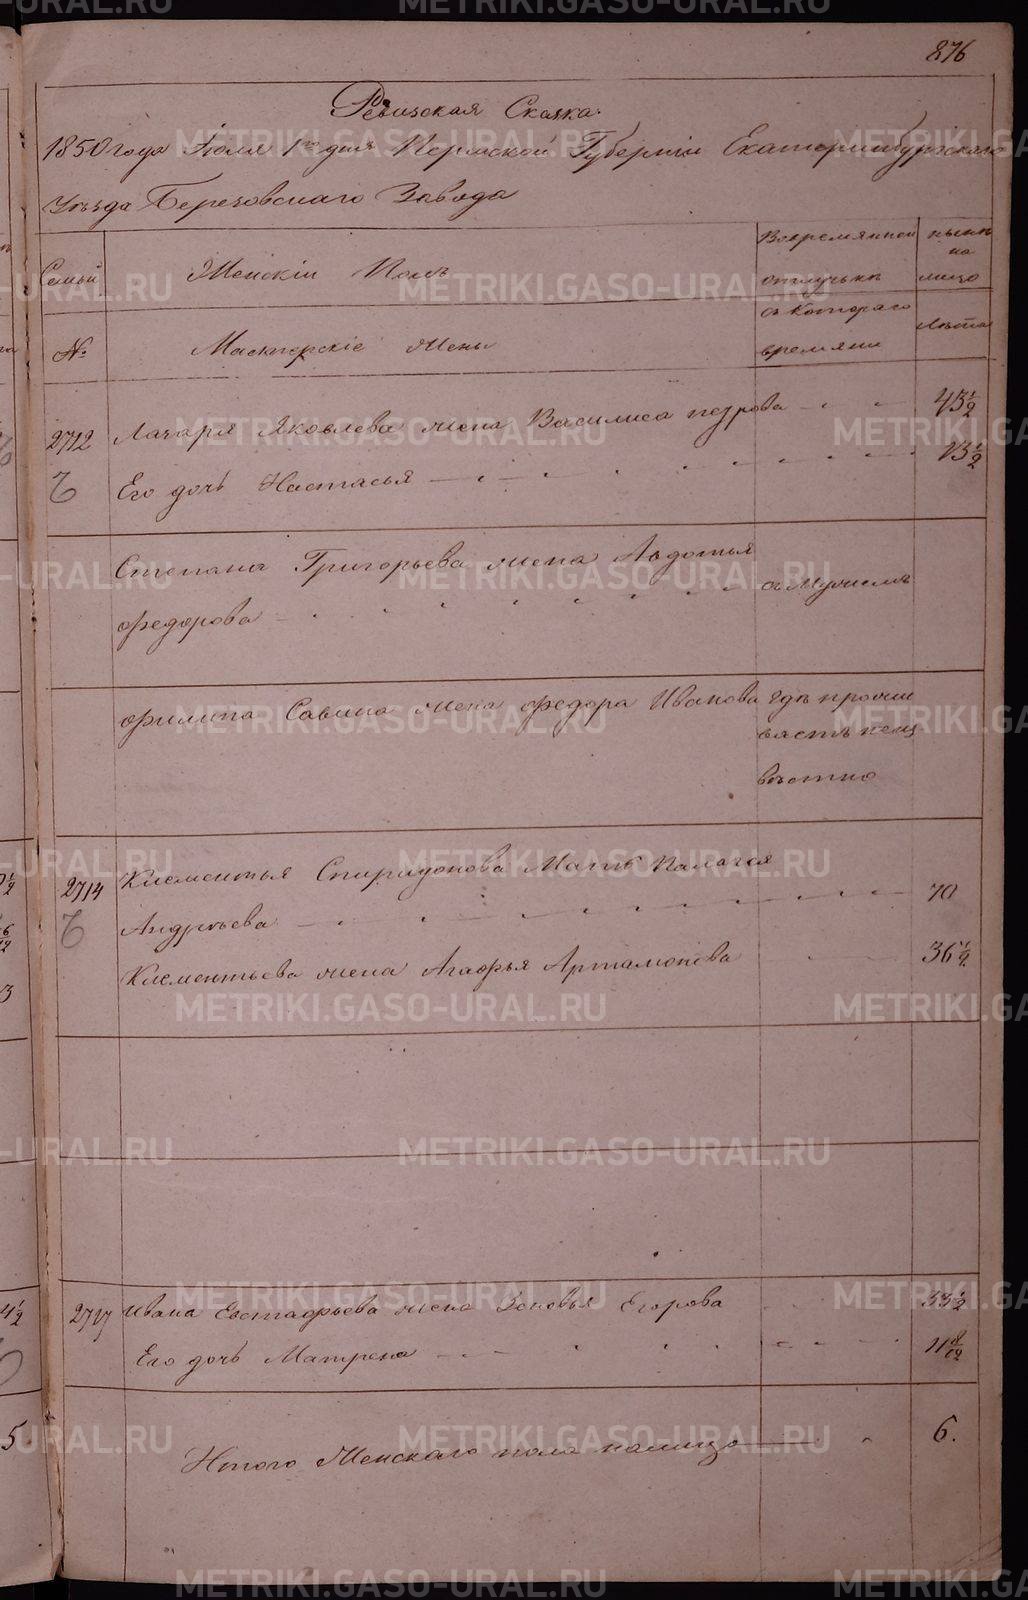 876
Ревизская Сказка.
1850 года Июля 1го дня Пермской Губерніи Екатеринбургскаго
Уѣзда Березовскаго Завода
Семьи
Женскій Полъ
Вовремянной отлучькѣ
нынѣ на лицо
№
Мастерскіе Жены
съ Котораго времяни
Лѣта
2712 Лазаря Яковлева жена Василиса петрова 45½
Его дочь Настасья 13½
Степана Григорьева жена Авдотья
федорова
съ Мужемъ
филипа Савина жена федора Иванова
гдѣ прожи
ваетъ неиз
вѣстно
2714 Клементья Спиридонова Мать Палагея
Андрѣева 70
Клементьева жена Агафья Артамонова 36½
2717 Ивана Евстафьева жена Зеновья Егорова 33½
Его дочь Матрена 11 8/12
Итого Женскаго пола налицо 6.
METRIKI.GASO-URAL.RU